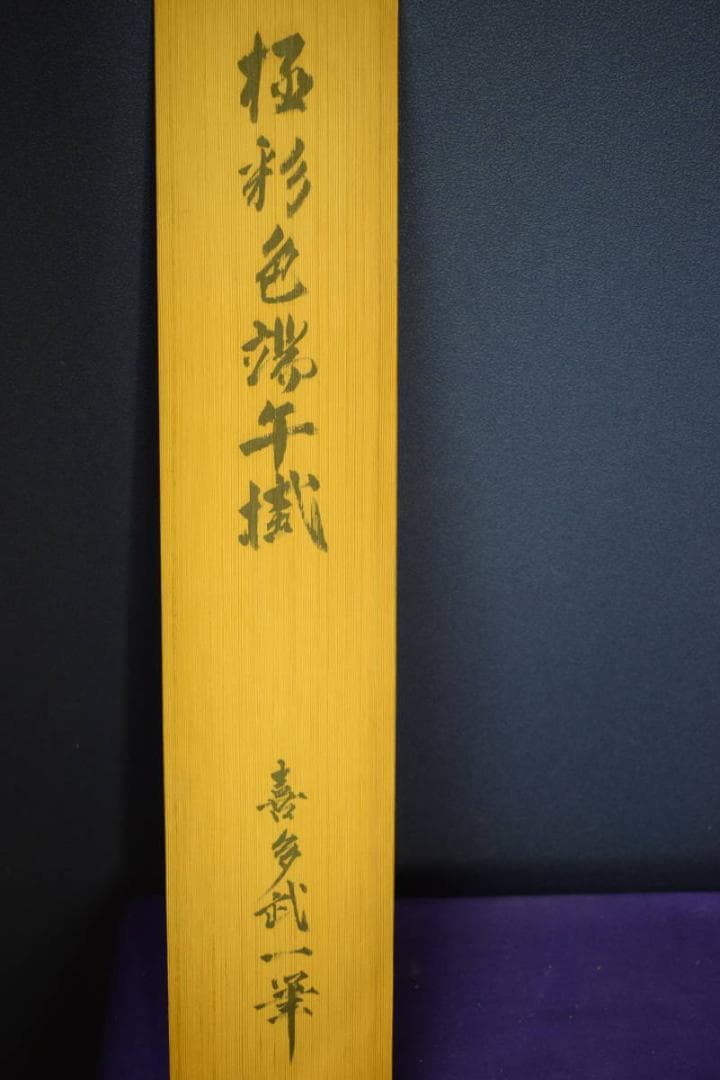 極彩色端午掛
喜多武一筆